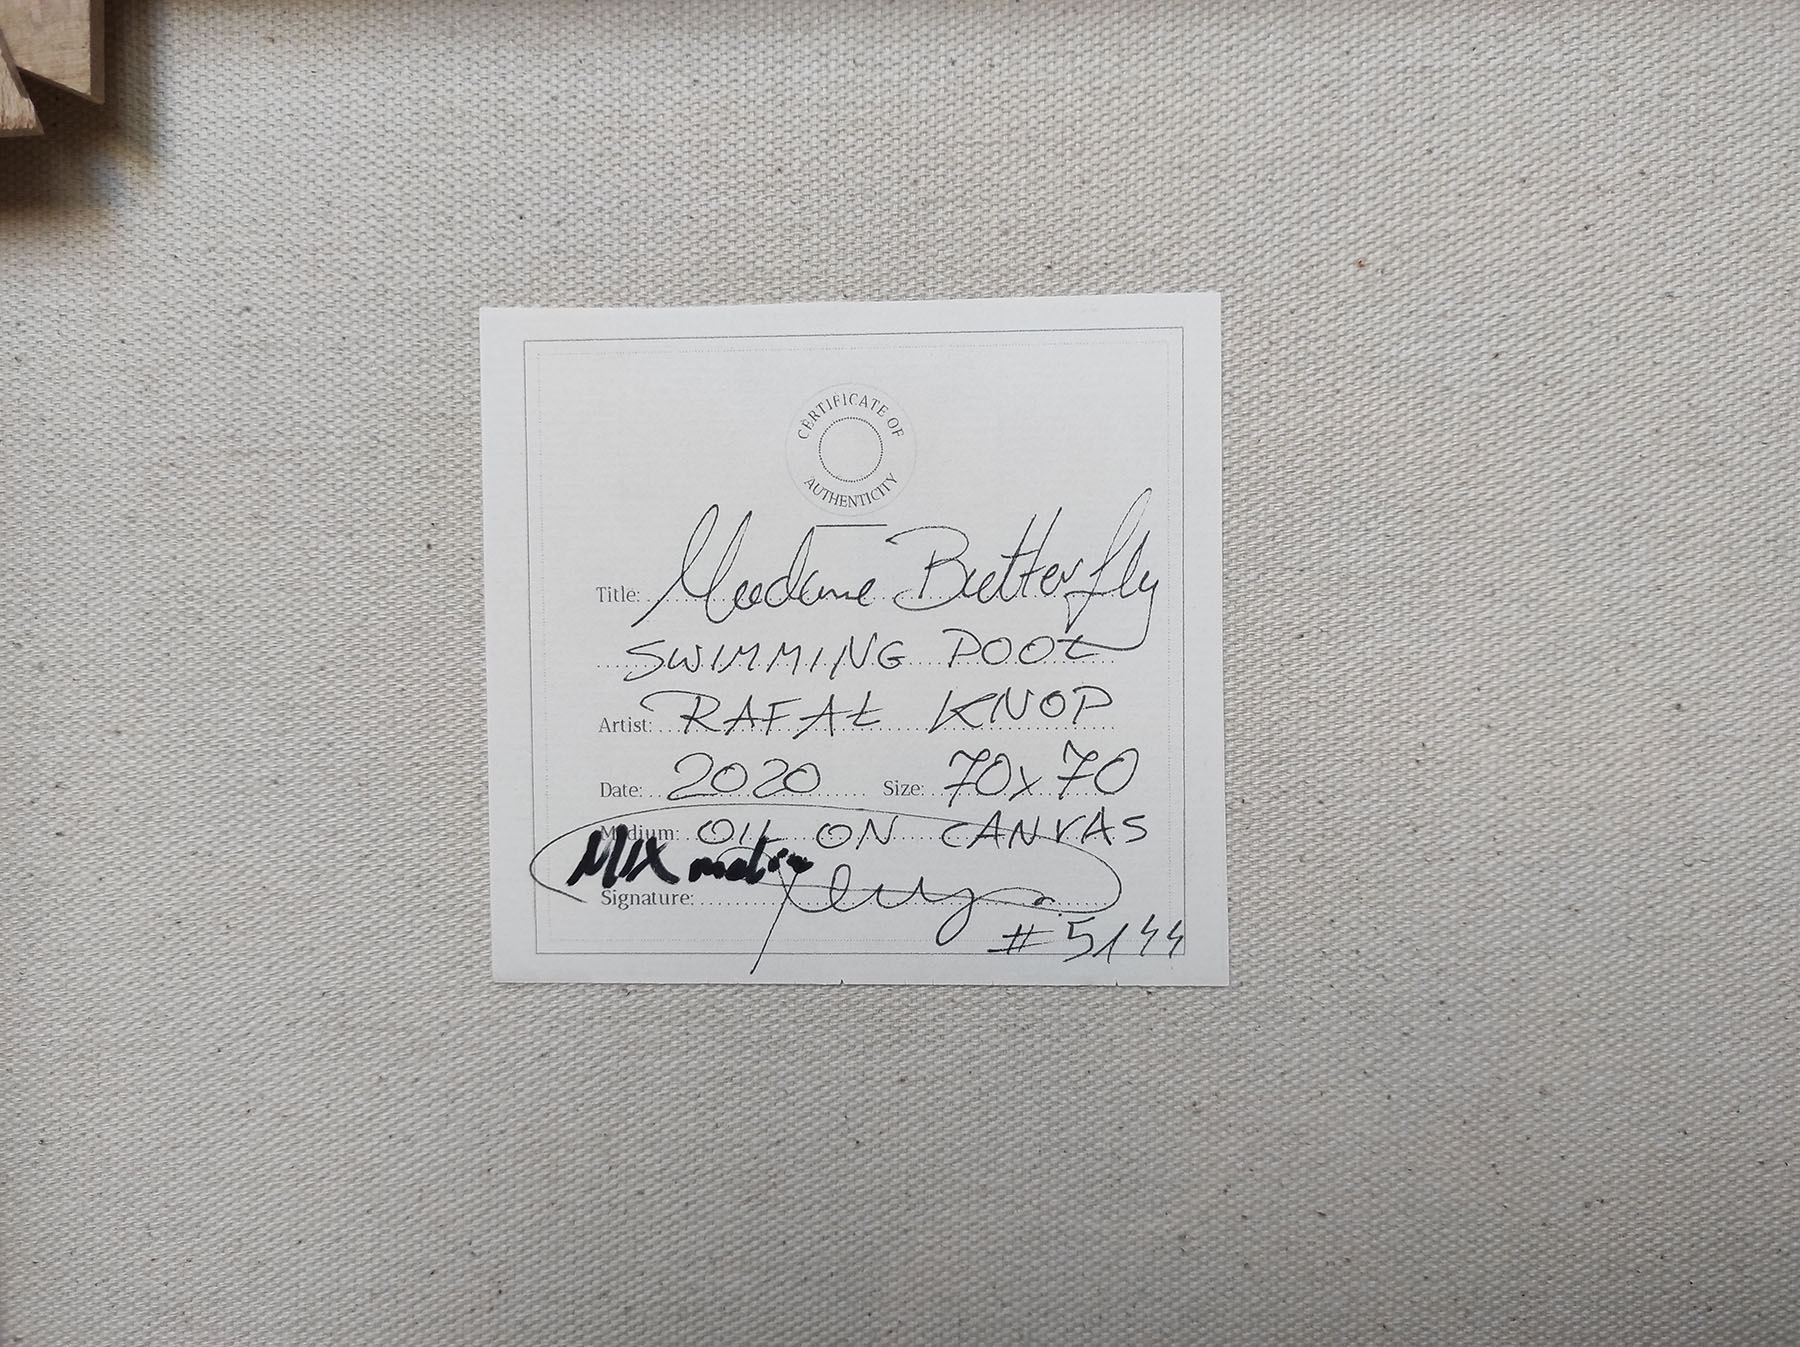 CERTIFICATE OF
AUTHENTICITY
Title: Madame Butterfly
SWIMMING POOL
Artist: RAFAŁ KNOP
Date: 2020 Size: 70x70
Medium: OIL ON CANVAS
MIX media
Signature:
#5144